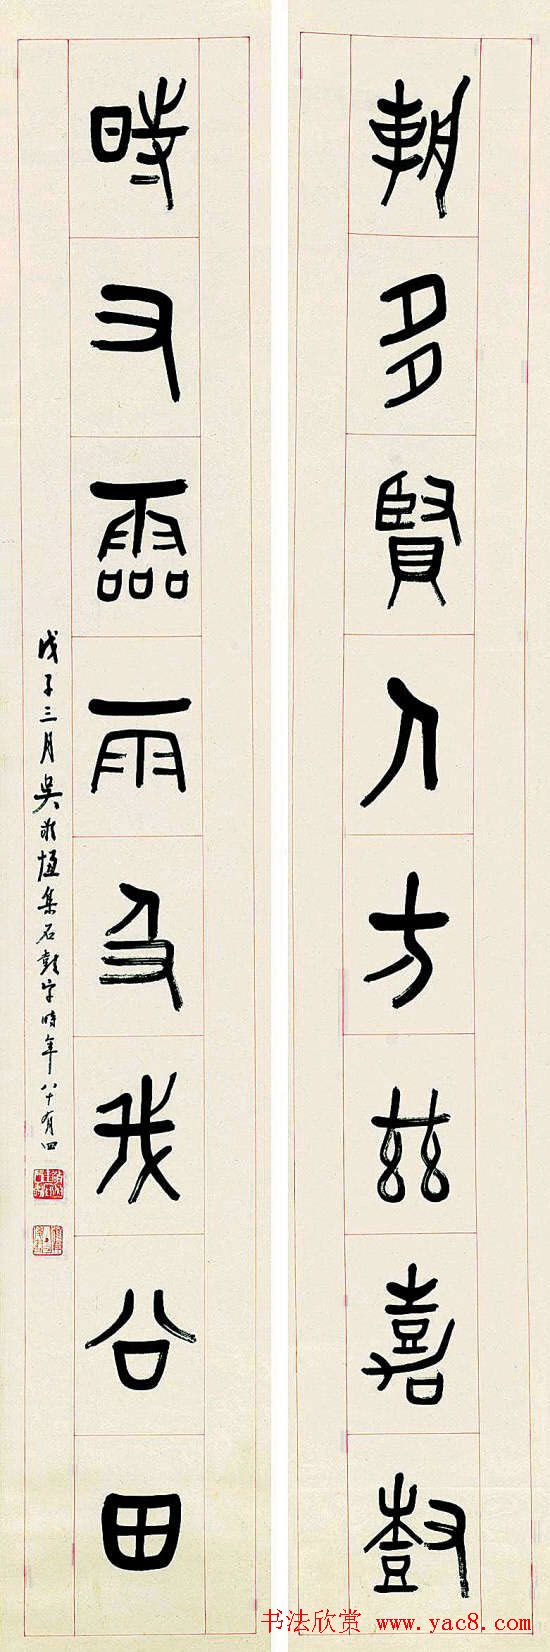 朝多賢人方茲嘉樹
時又霝雨及我公田
戊子三月吳敬恆集石鼓字時年八十有四
书法欣赏 www.yac8.com